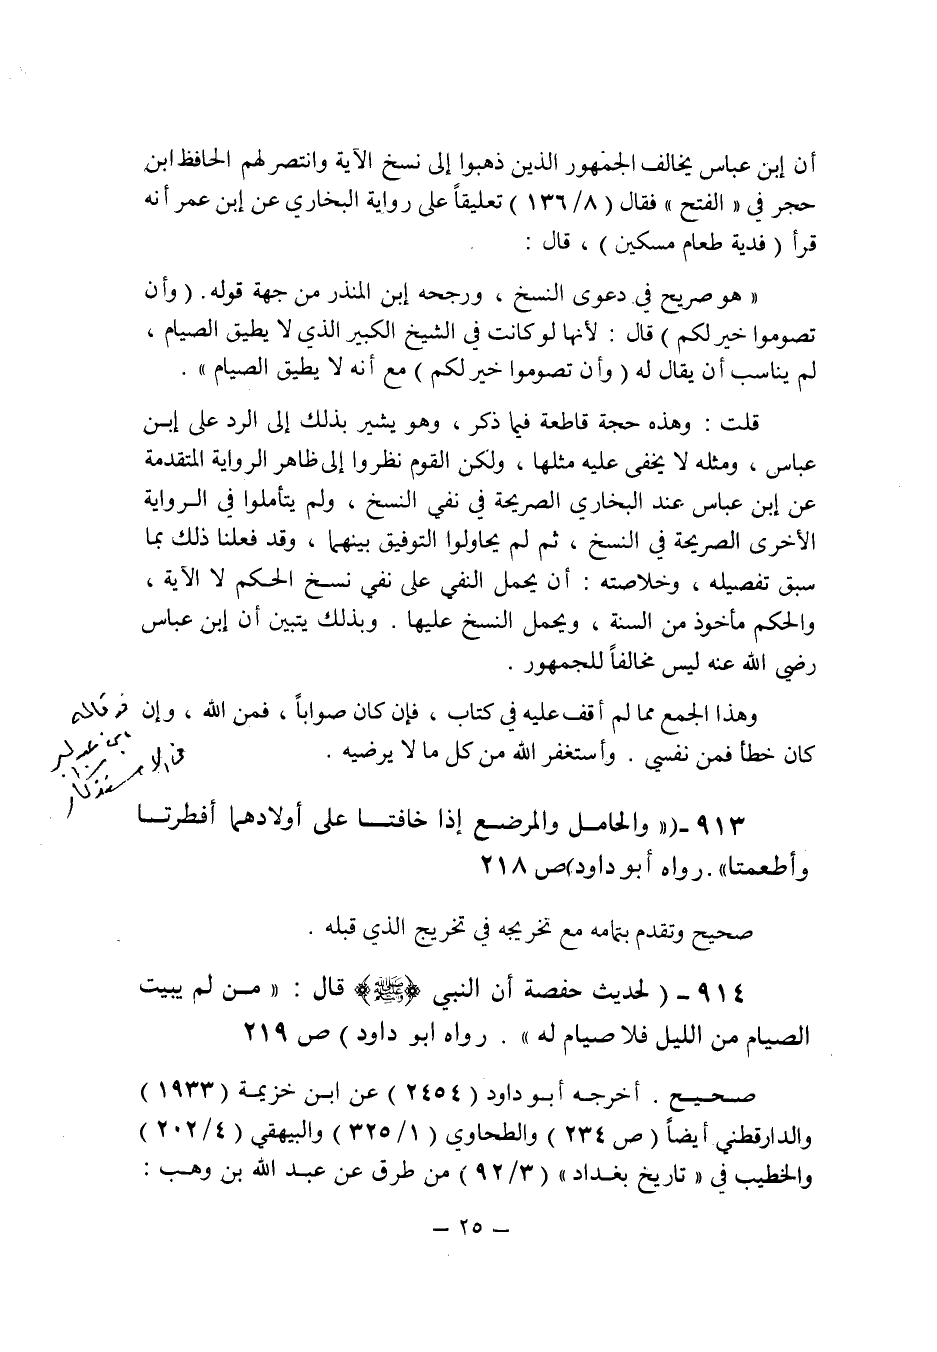 أن إبن عباس يخالف الجمهور الذين ذهبوا إلى نسخ الآية وانتصر لهم الحافظ ابن
حجر في « الفتح » فقال ( ٨/ ١٣٦ ) تعليقاً على رواية البخاري عن إبن عمر أنه
قرأ ( فدية طعام مسكين ) ، قال :
« هو صريح في دعوى النسخ ، ورجحه إبن المنذر من جهة قوله . ( وأن
تصوموا خير لكم ) قال : لأنها لو كانت في الشيخ الكبير الذي لا يطيق الصيام ،
لم يناسب أن يقال له ( وأن تصوموا خير لكم ) مع أنه لا يطيق الصيام » .
قلت : وهذه حجة قاطعة فيما ذكر ، وهو يشير بذلك إلى الرد على إبن
عباس ، ومثله لا يخفى عليه مثلها ، ولكن القوم نظروا إلى ظاهر الرواية المتقدمة
عن إبن عباس عند البخاري الصريحة في نفي النسخ ، ولم يتأملوا في الرواية
الأخرى الصريحة في النسخ ، ثم لم يحاولوا التوفيق بينهما ، وقد فعلنا ذلك بما
سبق تفصيله ، وخلاصته : أن يحمل النفي على نفي نسخ الحكم لا الآية ،
والحكم مأخوذ من السنة ، ويحمل النسخ عليها . وبذلك يتبين أن إبن عباس
رضي الله عنه ليس مخالفاً للجمهور .
وهذا الجمع مما لم أقف عليه في كتاب ، فإن كان صواباً ، فمن الله ، وإن
كان خطأ فمن نفسي . وأستغفر الله من كل ما لا يرضيه .
قد قاله
ابن عبد البر
في الاستذكار
٩١٣ -(« والحامل والمرضع إذا خافتا على أولادهما أفطرتا
وأطعمتا» .رواه أبو داود)ص ٢١٨
صحيح وتقدم بتمامه مع تخريجه في تخريج الذي قبله .
٩١٤ - ( لحديث حفصة أن النبي ﷺ قال : « من لم يبيت
الصيام من الليل فلا صيام له » . رواه ابو داود ) ص ٢١٩
صحيح . أخرجه أبو داود ( ٢٤٥٤ ) عن ابن خزيمة ( ١٩٣٣ )
والدارقطني أيضاً ( ص ٢٣٤ ) والطحاوي ( ١/ ٣٢٥ ) والبيهقي ( ٤/ ٢٠٢ )
والخطيب في « تاريخ بغداد » ( ٣/ ٩٢ ) من طرق عن عبد الله بن وهب :
– ٢٥ –